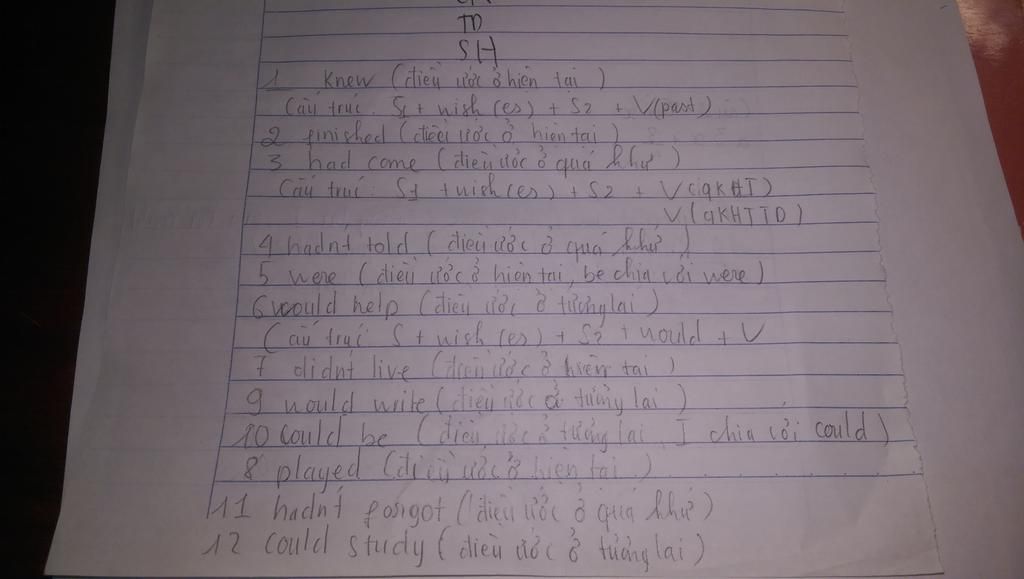 TD
SH
1 knew (điều ước ở hiện tại)
Cấu trúc: S1 + wish (es) + S2 + V(past)
2 finished (điều ước ở hiện tại)
3 had come (điều ước ở quá khứ)
Cấu trúc: S1 + wish(es) + S2 + V(qKHT)
V(qKHTTD)
4 hadn't told (điều ước ở quá khứ)
5 were (điều ước ở hiện tại, be chia với were)
6 would help (điều ước ở tương lai)
Cấu trúc S + wish (es) + S2 + would + V
7 didn't live (điều ước ở hiện tại)
9 would write (điều ước ở tương lai)
10 could be (điều ước ở tương lai, I chia với could)
8 played (điều ước ở hiện tại)
11 hadn't forgot (điều ước ở quá khứ)
12 could study (điều ước ở tương lai)